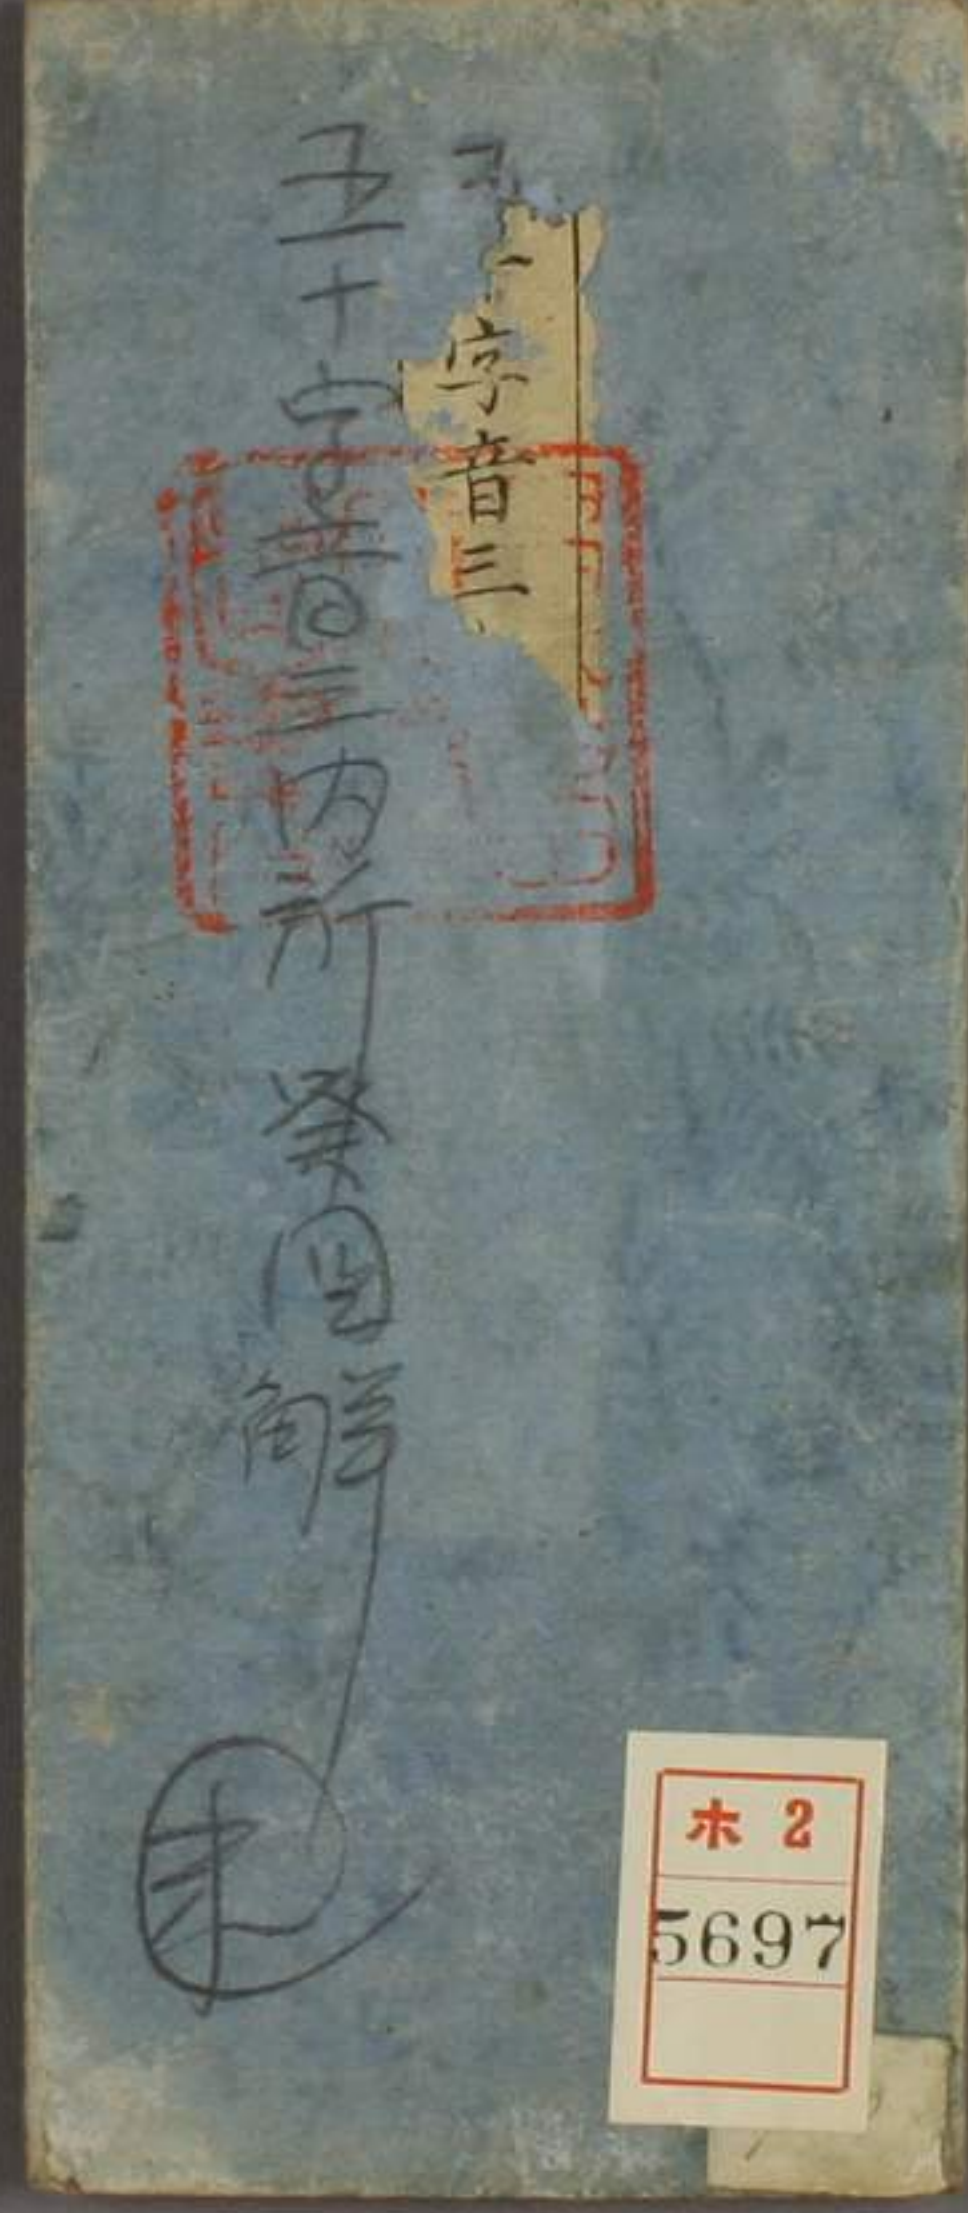 字音三
五十字音三内所発図解
ホ 2
5697